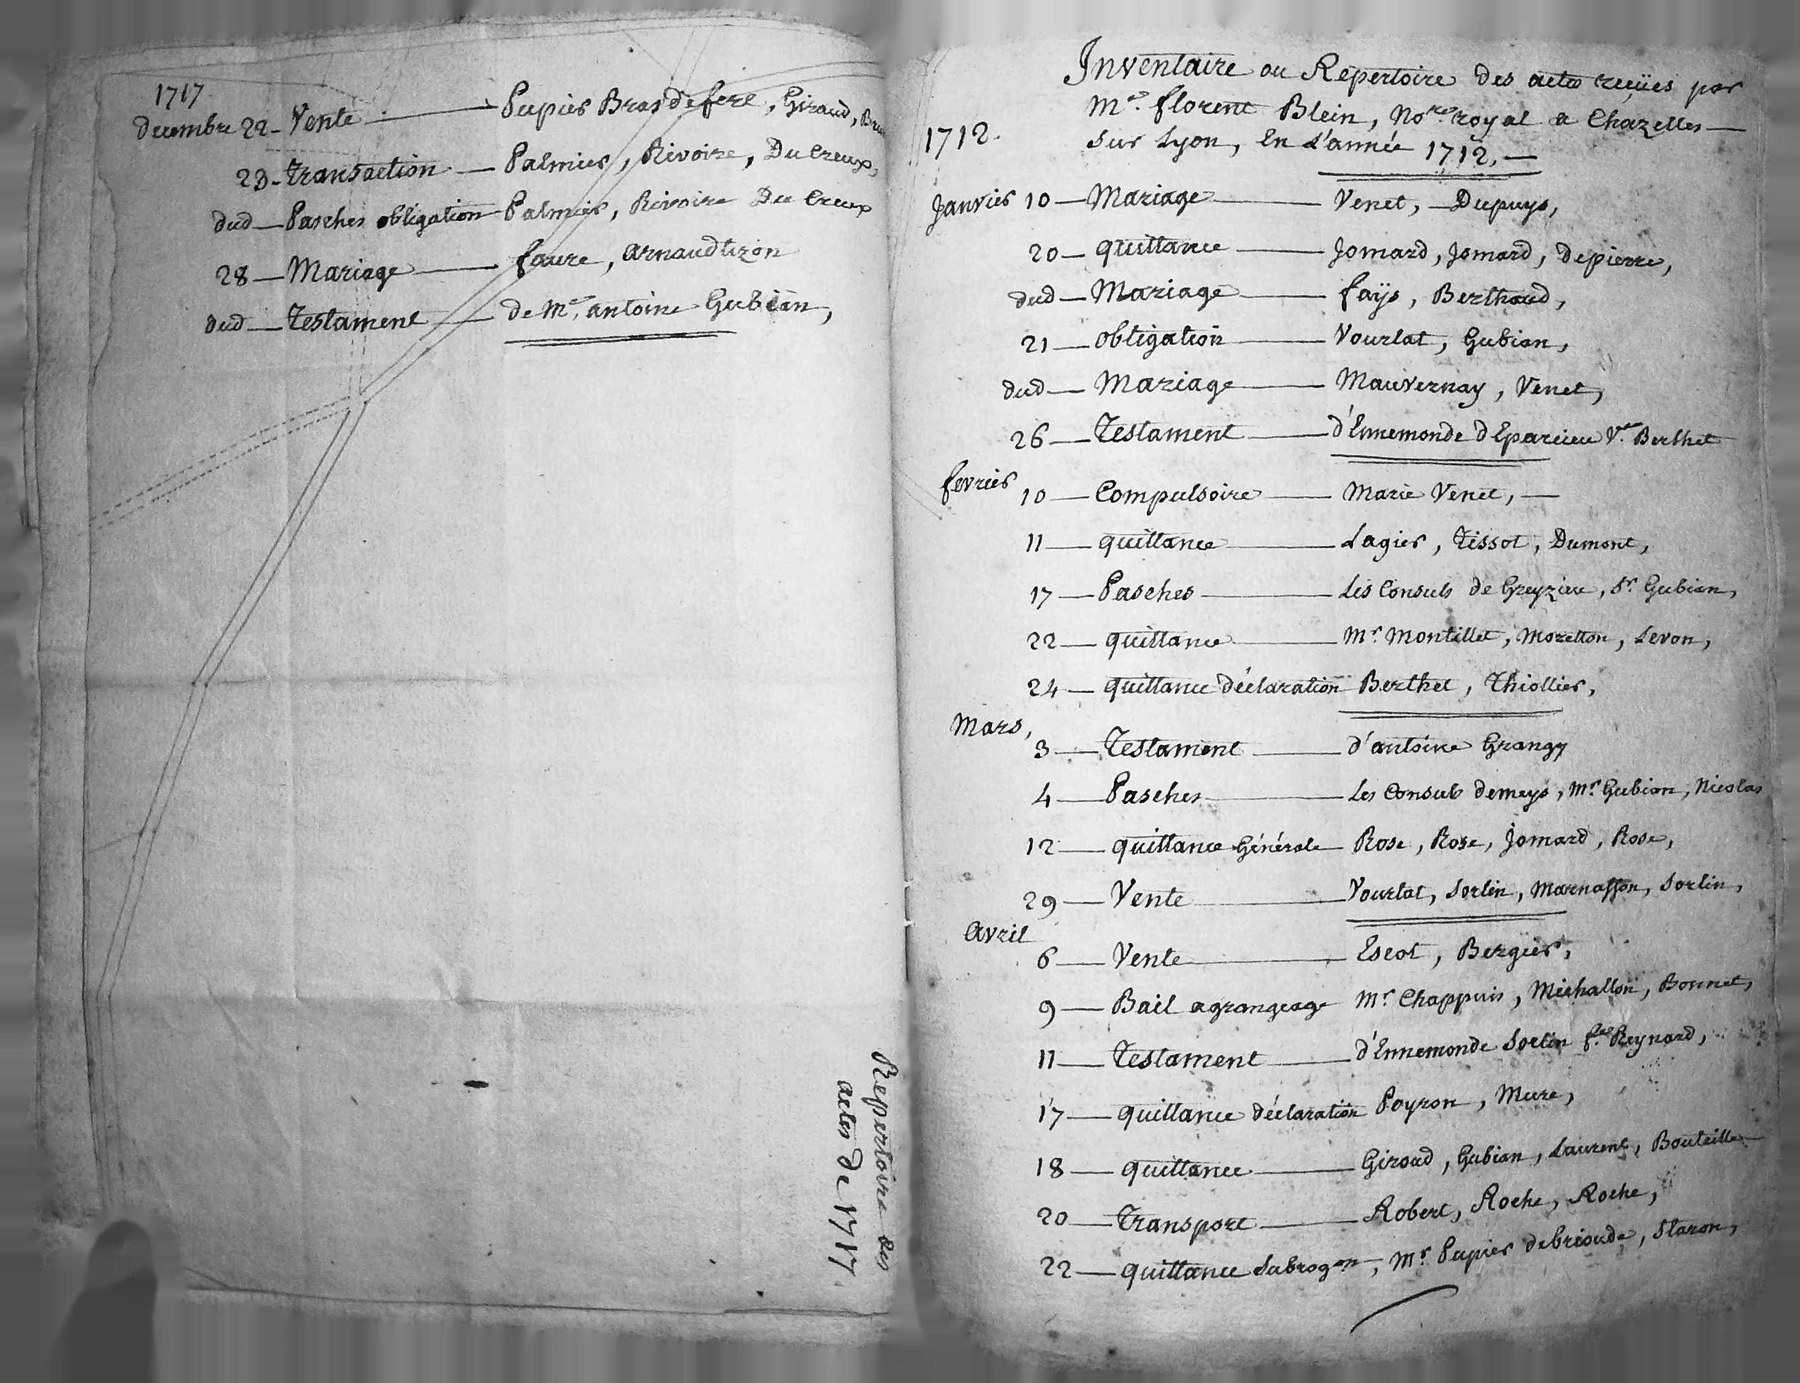 1717
decembre 22 - Vente — Pupier Bras de fere, Giraud,
23 - Transaction — Palmier, Rivoire, Du Creux,
dud — Pasches obligation — Palmier, Rivoire Du Creux
28 — Mariage — faure, arnaudtizon
dud — Testament — de Me. antoine Gubian,
Repertoire des
actes de 1717
Inventaire ou Repertoire des actes reçües par
Me. florent Blein, Nore. royal a Chazelles —
1712.
sur Lyon, En L'année 1712, —
Janvier 10 — Mariage — Venet, — Dupuys,
20 — quittance — Jomard, Jomard, Depierre,
dud — Mariage — faÿs, Berthaud,
21 — obligation — Vourlat, Gubian,
dud — Mariage — Mauvernay, Venet,
26 — Testament — d'Ennemonde d'Eparcieu Ve. Berthet
fevrier 10 — Compulsoire — Marie Venet, —
11 — quittance — Lagier, Tissot, Dumont,
17 — Pasches — Les Consuls de Greyzieu, Sr. Gubian,
22 — quittance — Mr. Montillet, Moretton, Levon,
24 — quittance déclaration Berthet, Thiollier,
Mars,
3 — Testament — d'antoine Grangy
4 — Pasches — Les Consuls demeys, Mr. Gubian, Nicolas
12 — quittance Générale — Rose, Rose, Jomard, Rose,
29 — Vente — Vourlat, Sorlin, Marnasson, Sorlin,
avril
6 — Vente — Escot, Bergier,
9 — Bail agrangeage Mr. Chappuis, Michallon, Bonnet,
11 — Testament — d'Ennemonde Sorlin fe. Reynard,
17 — quittance déclaration Poyron, Mure,
18 — quittance — Giroud, Gubian, Laurent, Bouteille
20 — Transport — Robert, Roche, Roche,
22 — quittance Subrogon, Mr. Pupier debrioude, Staron,